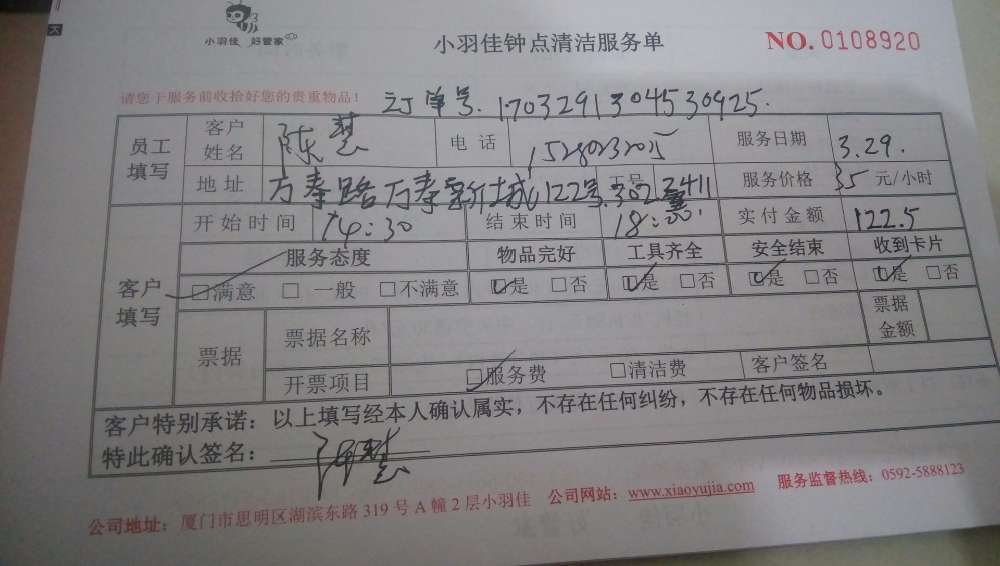 小羽佳 好管家
小羽佳钟点清洁服务单
NO. 0108920
请您于服务前收拾好您的贵重物品!
订单号.1703291304530925.
员工填写
客户姓名 陈慧 电话 服务日期 3.29.
地址 万寿路万寿新城122号.302 工号 2411 服务价格 35 元/小时
客户填写
开始时间 14:30 结束时间 18:00. 实付金额 122.5
服务态度 物品完好 工具齐全 安全结束 收到卡片
□满意 □一般 □不满意 □是 □否 □是 □否 □是 □否 □是 □否
票据 票据名称 票据金额
开票项目 □服务费 □清洁费 客户签名
客户特别承诺:以上填写经本人确认属实,不存在任何纠纷,不存在任何物品损坏。
特此确认签名: 陈慧
公司地址:厦门市思明区湖滨东路 319 号 A 幢 2 层小羽佳 公司网站:www.xiaoyujia.com 服务监督热线:0592-5888123